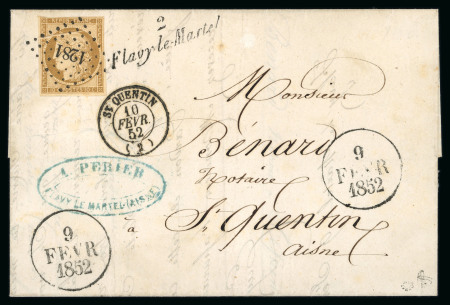 1281
2
Flavy-le-Martel
ST QUENTIN
10
FEVR.
52
(2)
Monsieur
Bénard
Notaire
à
St Quentin
Aisne
A. PERIER
FLAVY LE MARTEL (AISNE)
9
FEVR
1852
9
FEVR
1852